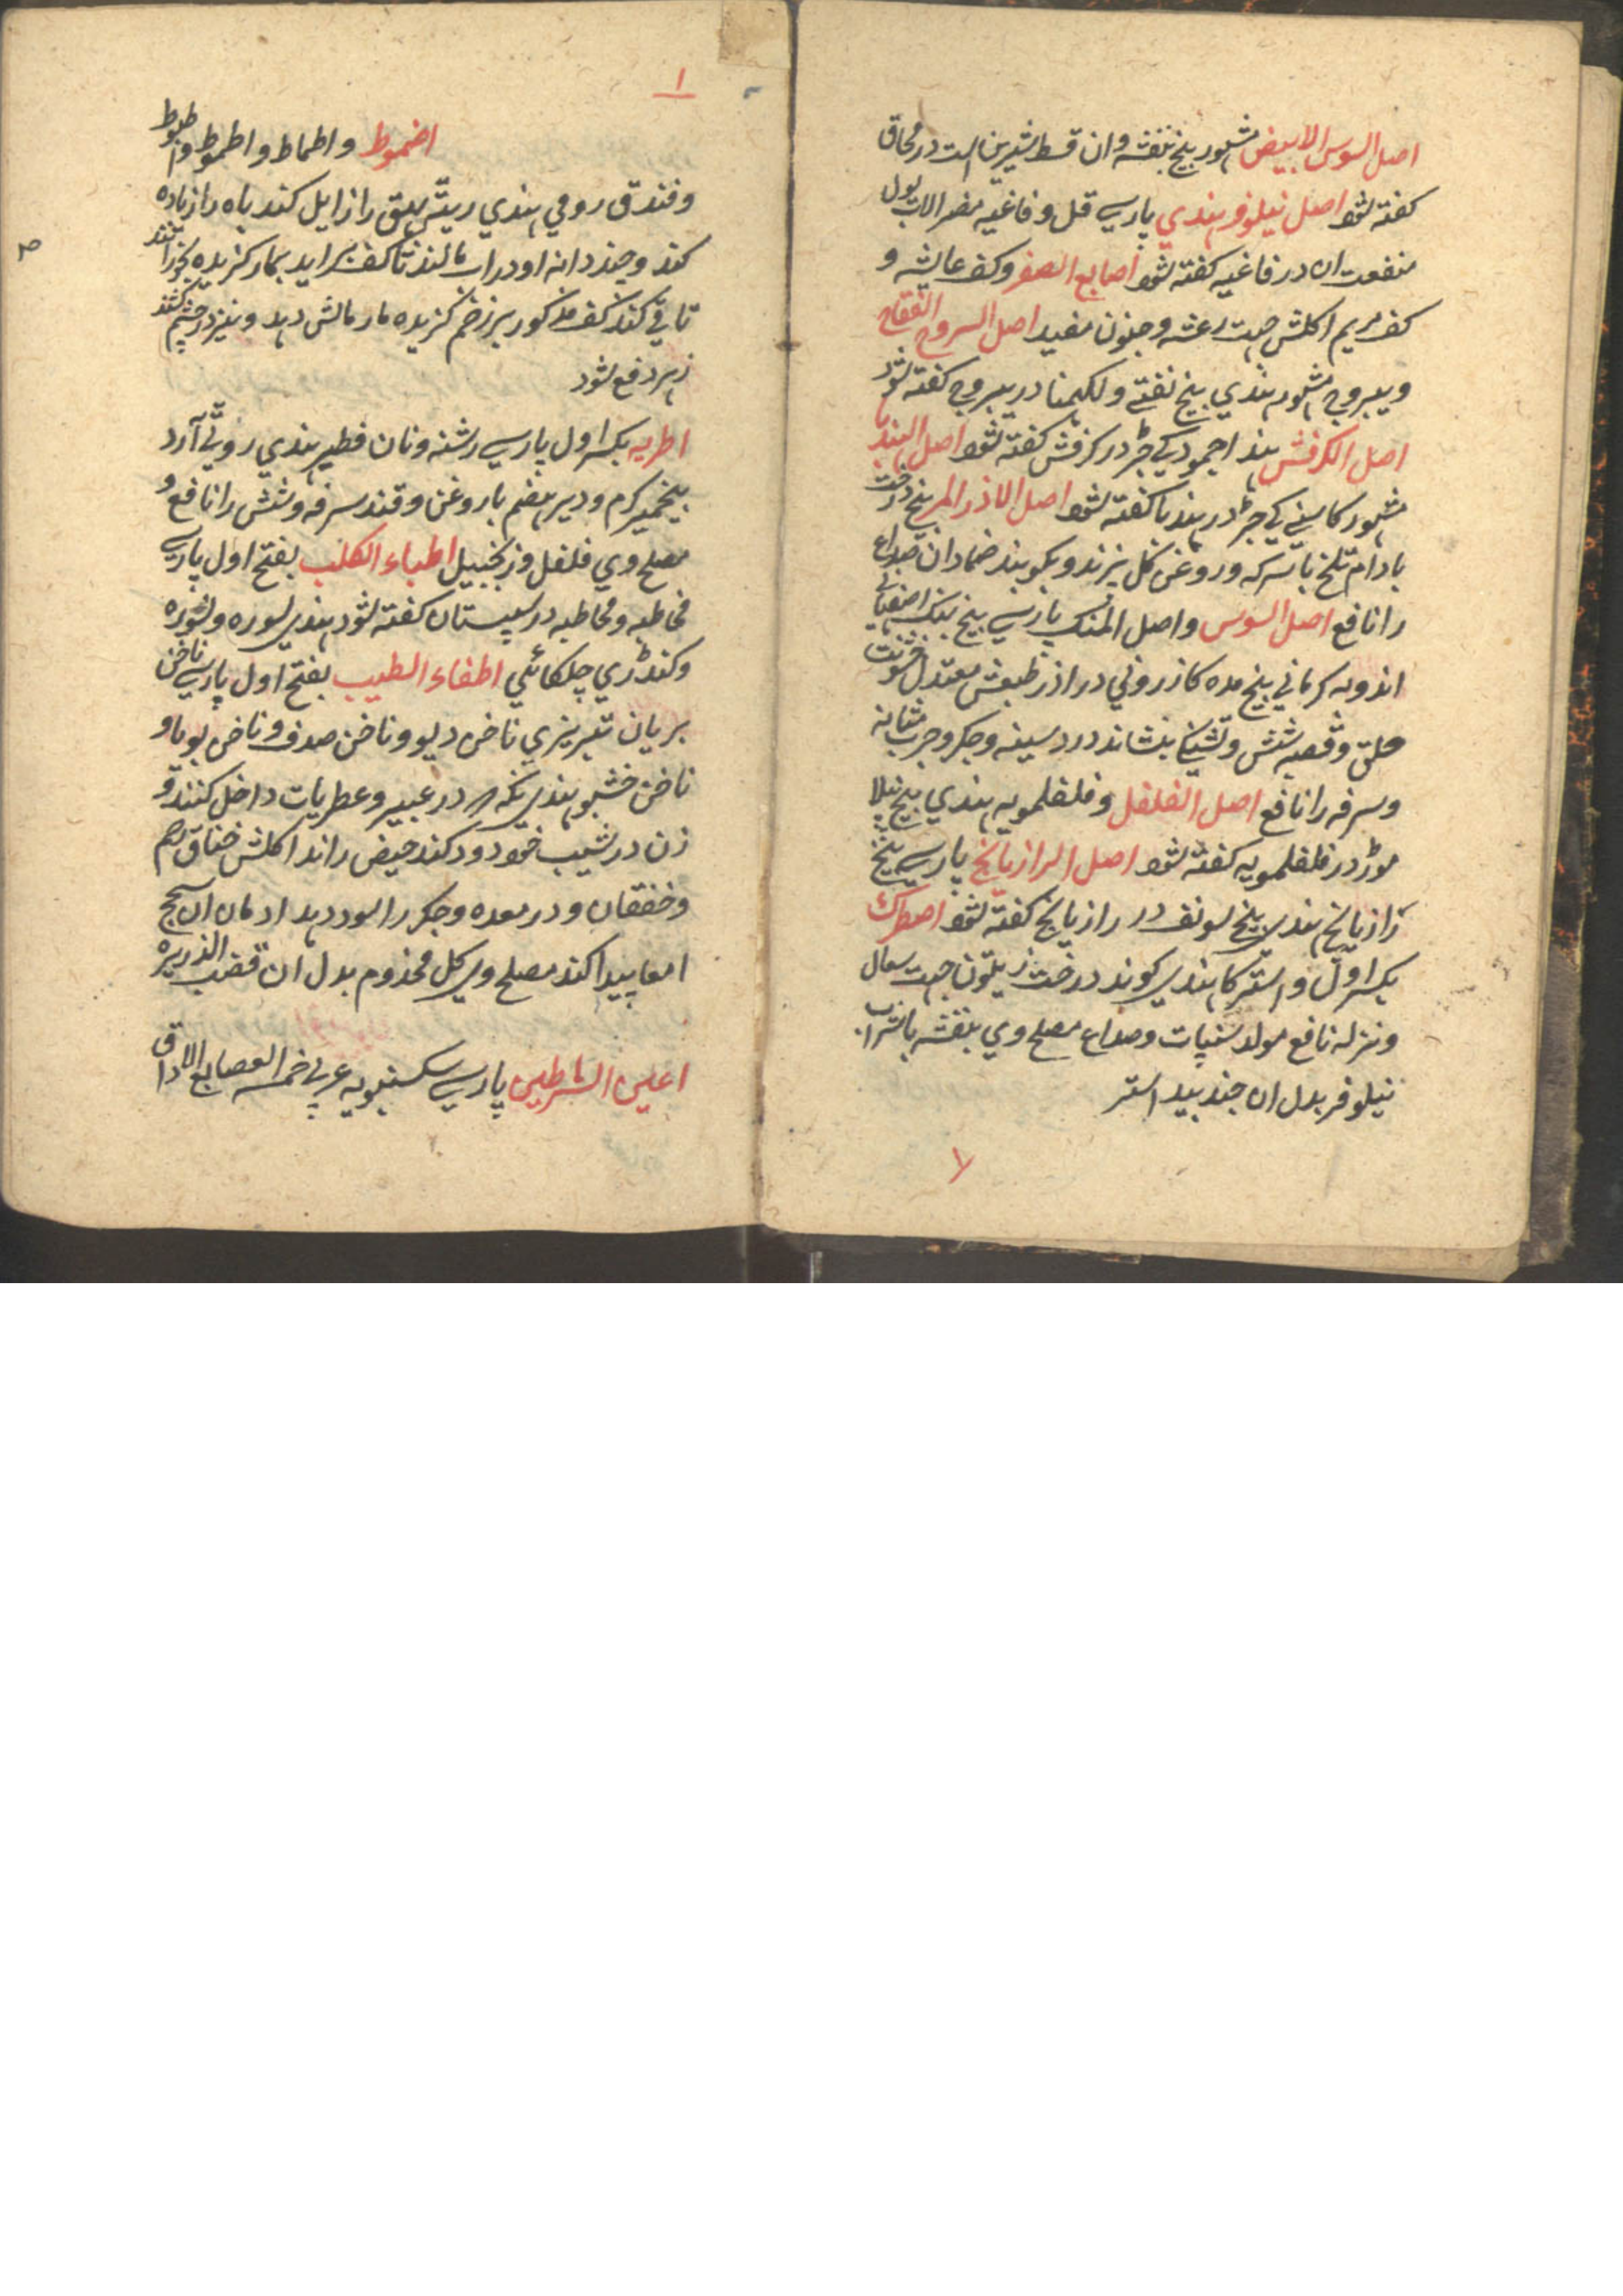 اصل السوس الابیض مشهور بیخ بنفشه وان قسط شیرین است در محاق
کفته شود اصل نیلوفر هندي پارسے قل و فاغیه مضر الات بول
منفعت ان در فاغیه کفته شود اصابع الصفر وکف عایشه و
کف مریم اکلش جهت رعشه وجنون مفید اصل السروج الفقاح
ویبروج مشهور هندي بیخ نفتے ولکهمنا در یبروج کفته شود
اصل الکرفش هند اجمود کے جڑ در کرفش کفته شود اصل الهندبا
مشهور کاسنے کے جڑ در هندبا کفته شود اصل الاذر المر بیخ درخت
بادام تلخ با سرکه وروغن کل پزند وبکوبند ضماد ان صداع
را نافع اصل السوس واصل المنک پارسے بیخ بنک اصفهانے
اندوبه کرمانے بیخ مده کازرونی دراذر طبعش معتدل خشونت
حلق وقصبه شش وتشنکے بنشاند درد سینه وجکر وجرب مثانه
وسرفه را نافع اصل الفلفل وفلفلمویه هندي بیخ پیلا
موڑ در فلفلمویه کفته شود اصل الرازیانج پارسے بیخ
رازیانج هندی بیخ سونف در رازیانج کفته شود اصطرک
بکسر اول واسترکا هندی کوند درخت زیتون جهت سعال
ونزله نافع مولد سنپات وصداع مصلح وي بنفشه یا شراب
نیلوفر بدل ان جند بید استر
۷
۱
اضموط واطماط واطموط واطبوط
وفندق رومي هندي ریٹه بهق را زایل کند باه را زیاده
کند وچند دانه او در اب مالند تا کف براید بمار کزیده بخورانند
تا قے کند کف مذکور بر زخم کزیده مار مالش دهد ونیز در چشم کشند
زهر دفع شود
اطریه بکسر اول پارسے رشته ونان فطیر هندي روٹی آرد
بیخمیر کرم ودیر هضم با روغن وقند سرفه وشش را نافع و
مصلح وي فلفل وزنجبیل اطباء الکلب بفتح اول پارسے
مخاطبه ومخاطیه در سپستان کفته شود هندی لسوره ولشوره
وکندڑي چلکائي اطفاء الطیب بفتح اول پارسے ناخن
بریان تبریزي ناخن دیو وناخن صدف وناخن بویا و
ناخن خشبو هندی نکه در عبیر وعطریات داخل کنند و
زن در شیب خود دود کند حیض راند اکلش خناق رحم
وخفقان ودر معده وجکر را سود دهد ادمان ان سحج
امعا پیدا کند مصلح وی کل مخذوم بدل ان قصب الذریره
اعین السرطین پارسے سکسنبویه عربي خمسه العصابع الاداق